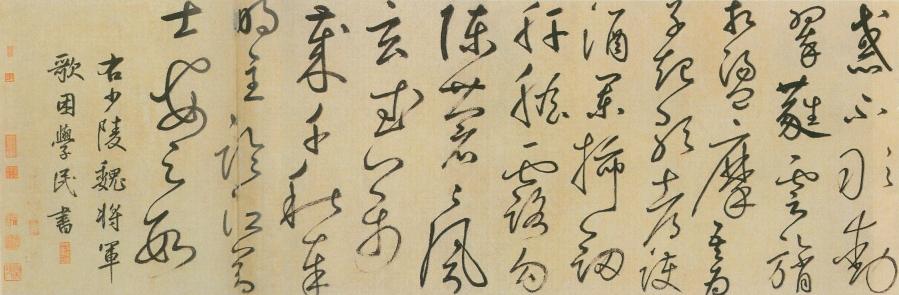 惑不敢動
翠蕤雲旓
相盪摩吾為
子起歌都護
酒闌插劍
肝膽露勾
陳蒼〻風
玄武萬
歲千秋奉
明主臨江節
士安足數
右少陵魏將軍
歌困學民書